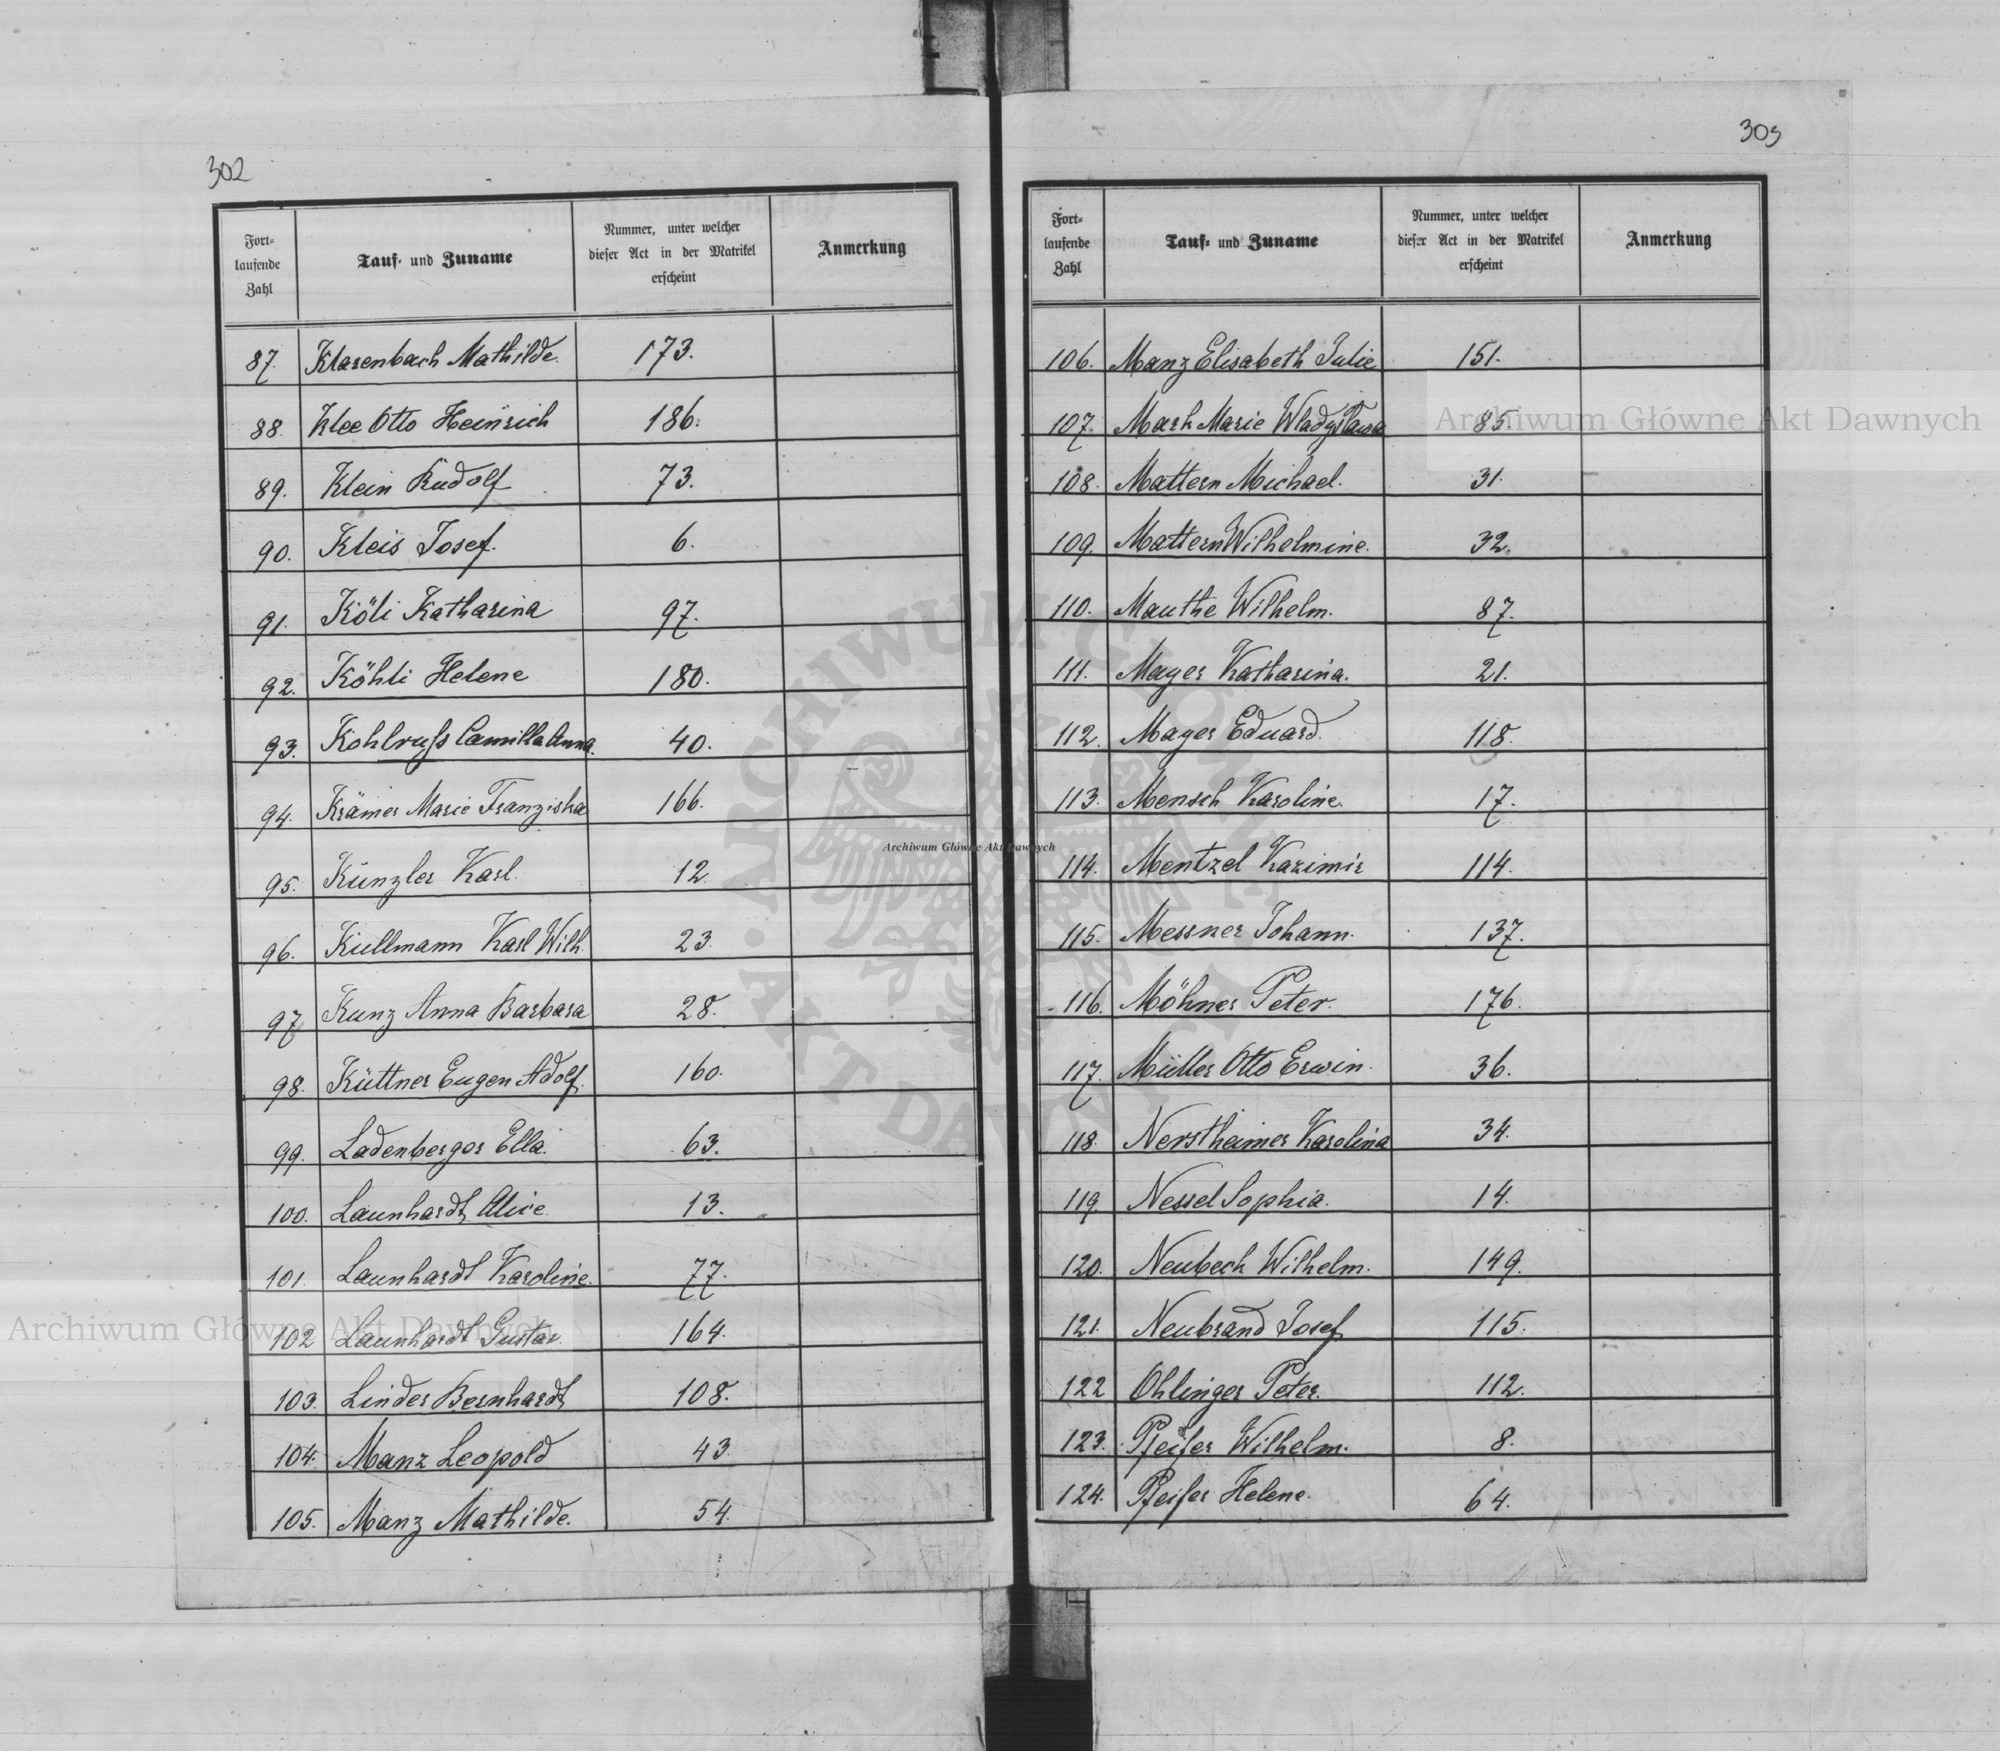 302
Fort-
laufende
Zahl
Tauf- und Zuname
Nummer, unter welcher
dieser Act in der Matrikel
erscheint
Anmerkung
87. Klarenbach Mathilde. 173.
88. Klee Otto Heinrich 186.
89. Klein Rudolf 73.
90. Kleis Josef. 6.
91. Köli Katharina 97.
92. Köhli Helene 180.
93. Kohlruß Camilla Anna. 40.
94. Krämer Marie Franziska 166.
95. Künzler Karl. 12.
96. Kullmann Karl Wilh. 23.
97. Kunz Anna Barbara 28.
98. Küttner Eugen Adolf. 160.
99. Ladenberger Ella. 63.
100. Launhardt Alice. 13.
101. Launhardt Karoline. 77.
102 Launhardt Gustav. 164.
103. Linder Bernhardt 108.
104. Manz Leopold 43.
105. Manz Mathilde. 54.
303
Fort-
laufende
Zahl
Tauf- und Zuname
Nummer, unter welcher
dieser Act in der Matrikel
erscheint
Anmerkung
106. Manz Elisabeth Julie 151.
107. Mark Marie Władysława 85.
108. Mattern Michael. 31.
109. Mattern Wilhelmine. 32.
110. Mauthe Wilhelm. 87.
111. Mayer Katharina. 21.
112. Mayer Eduard. 118.
113. Mensch Karoline. 17.
114. Mentzel Kazimir 114.
115. Messner Johann. 137.
116. Möhner Peter. 176.
117. Müller Otto Erwin. 36.
118. Nerstheimer Karolina 34.
119. Nessel Sophia. 14.
120. Neubeck Wilhelm. 149.
121. Neubrand Josef 115.
122 Ohlinger Peter. 112.
123. Pfeifer Wilhelm. 8.
124. Pfeifer Helene. 64.
Archiwum Główne Akt Dawnych
Archiwum Główne Akt Dawnych
Archiwum Główne Akt Dawnych
ARCHIWUM GŁÓWNE • AKT DAWNYCH